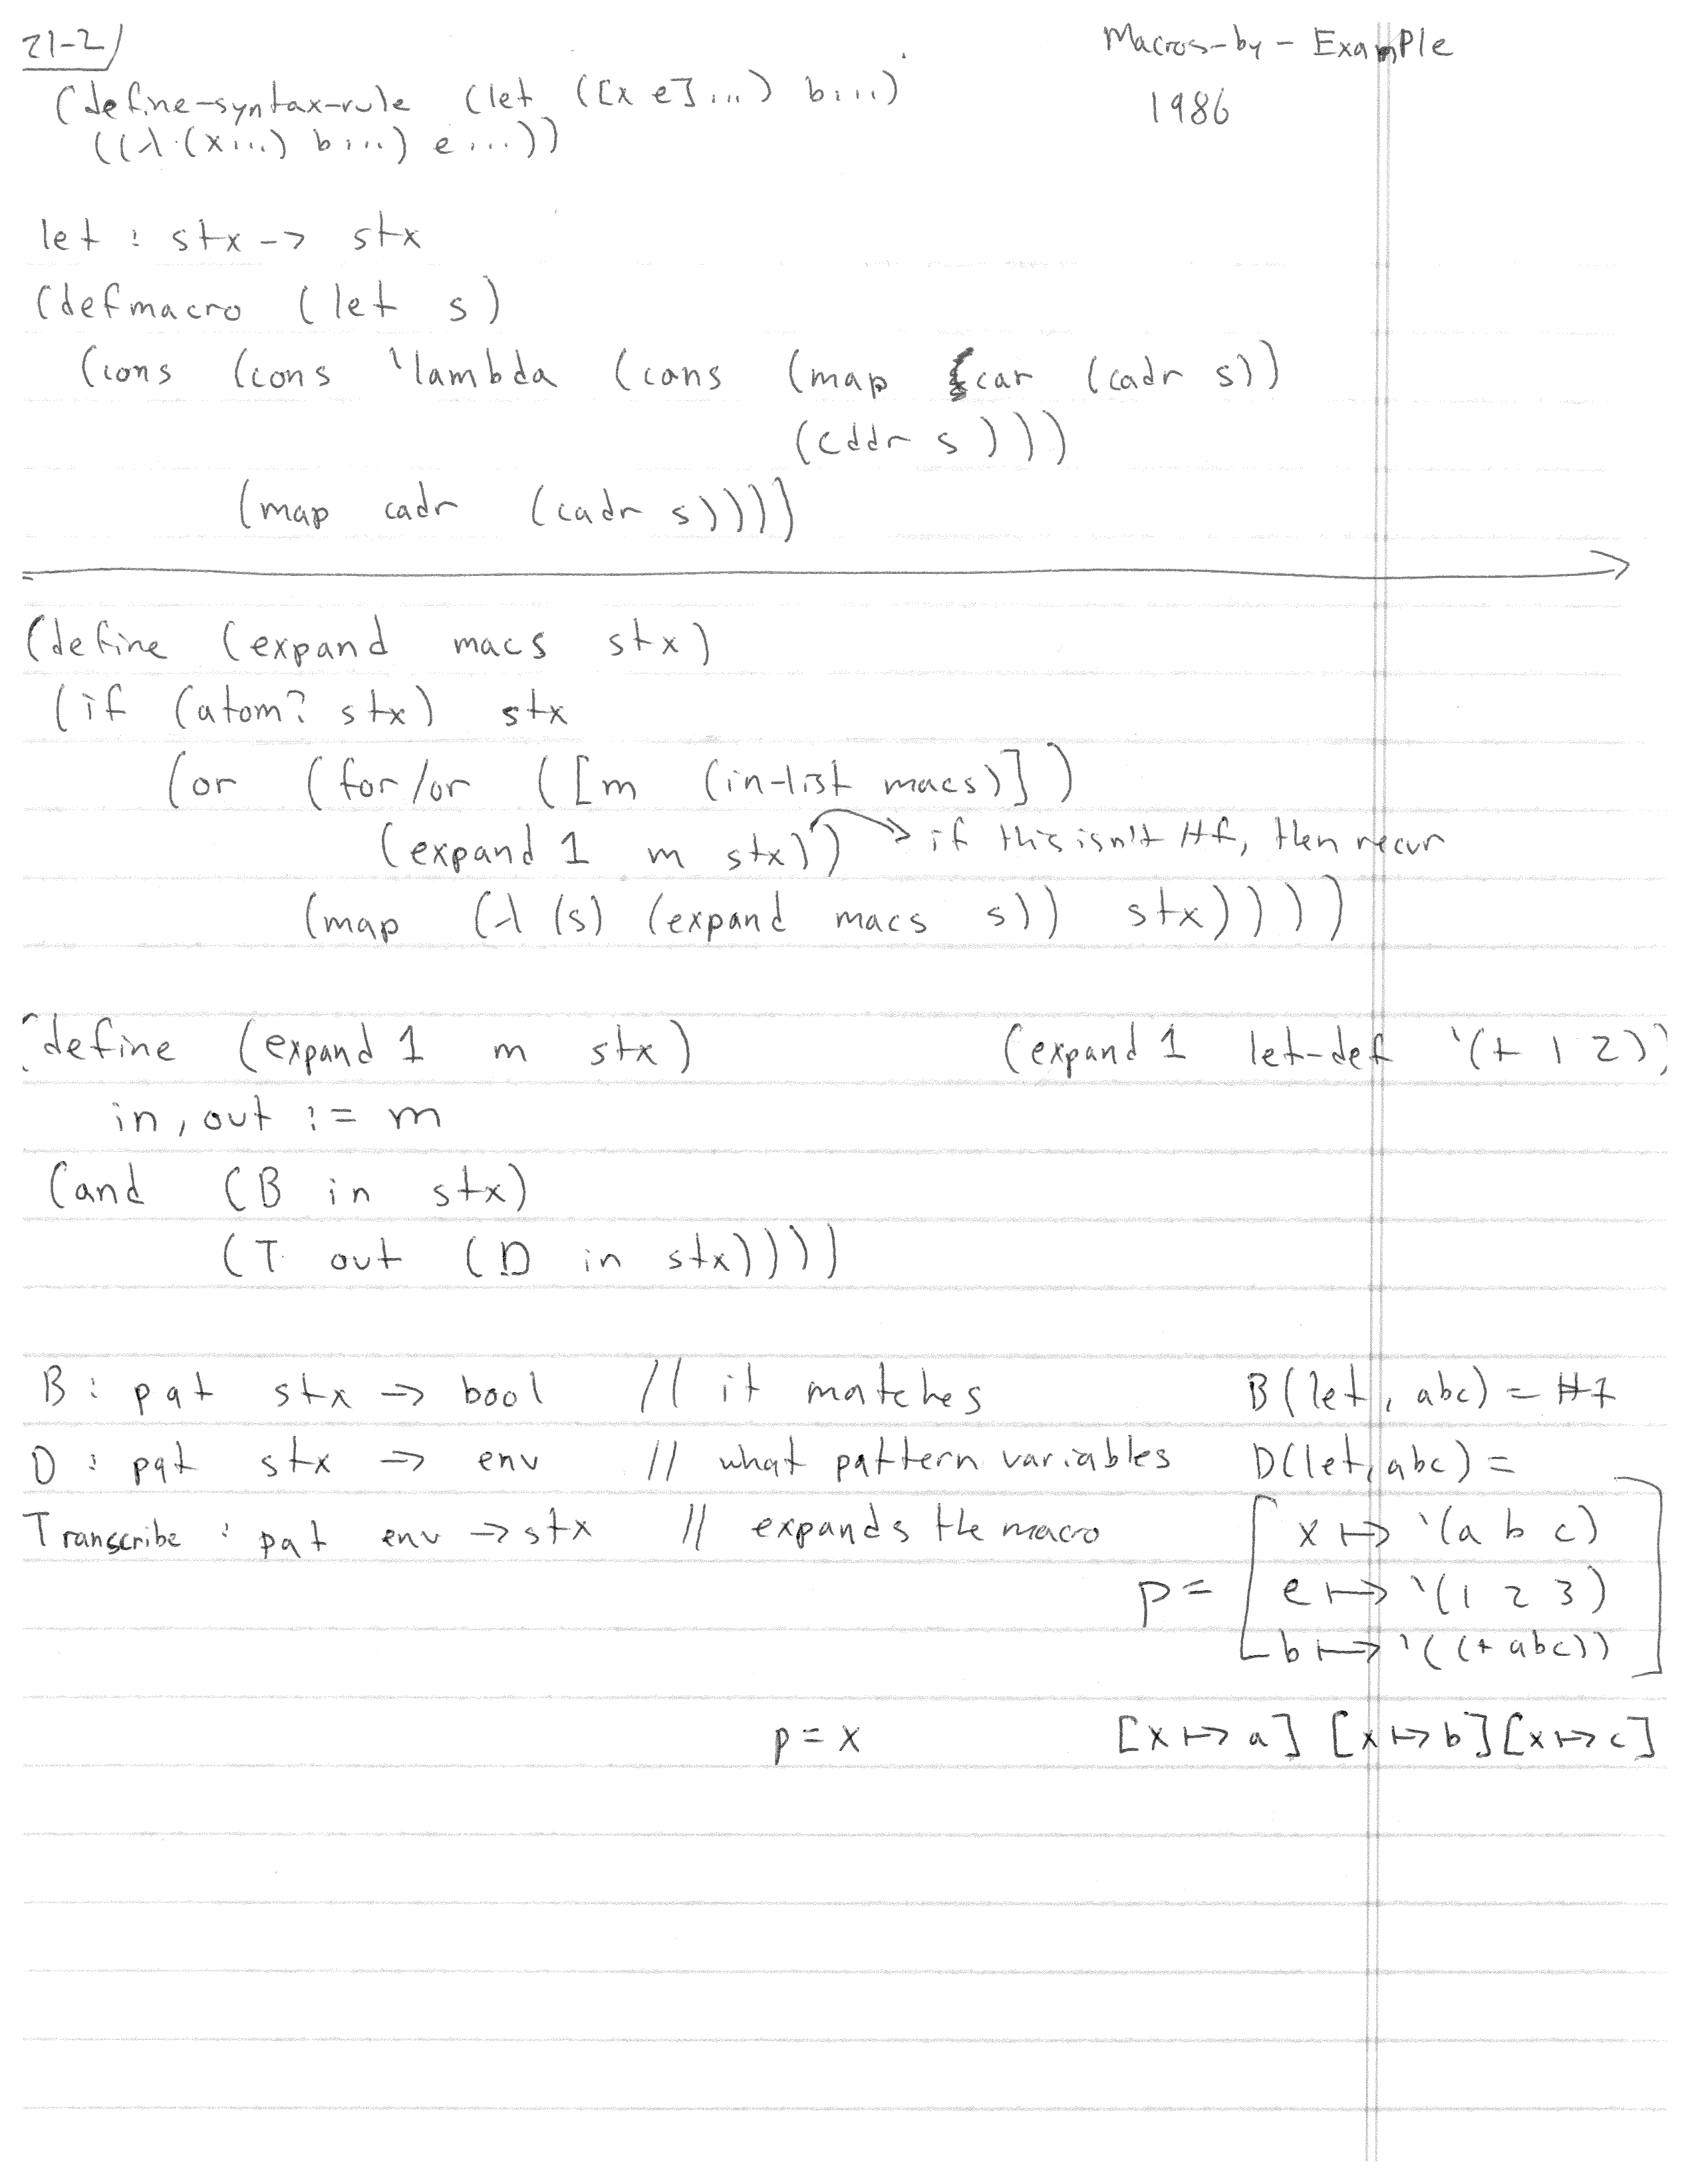 21-2/
Macros-by-Example
1986
(define-syntax-rule (let ([x e]...) b...)
((λ (x...) b...) e...))
let : stx -> stx
(defmacro (let s)
(cons (cons 'lambda (cons (map car (cadr s))
(cddr s)))
(map cadr (cadr s))))
(define (expand macs stx)
(if (atom? stx) stx
(or (for/or ([m (in-list macs)])
(expand1 m stx)) → if this isn't #f, then recur
(map (λ (s) (expand macs s)) stx))))
(define (expand1 m stx)
(expand1 let-def '(+ 1 2))
in, out := m
(and (B in stx)
(T out (D in stx))))
B : pat stx → bool // it matches
B(let, abc) = #t
D : pat stx → env // what pattern variables
D(let, abc) =
Transcribe : pat env → stx // expands the macro
x ↦ '(a b c)
p = e ↦ '(1 2 3)
b ↦ '((+ abc))
p = x [x ↦ a] [x ↦ b] [x ↦ c]